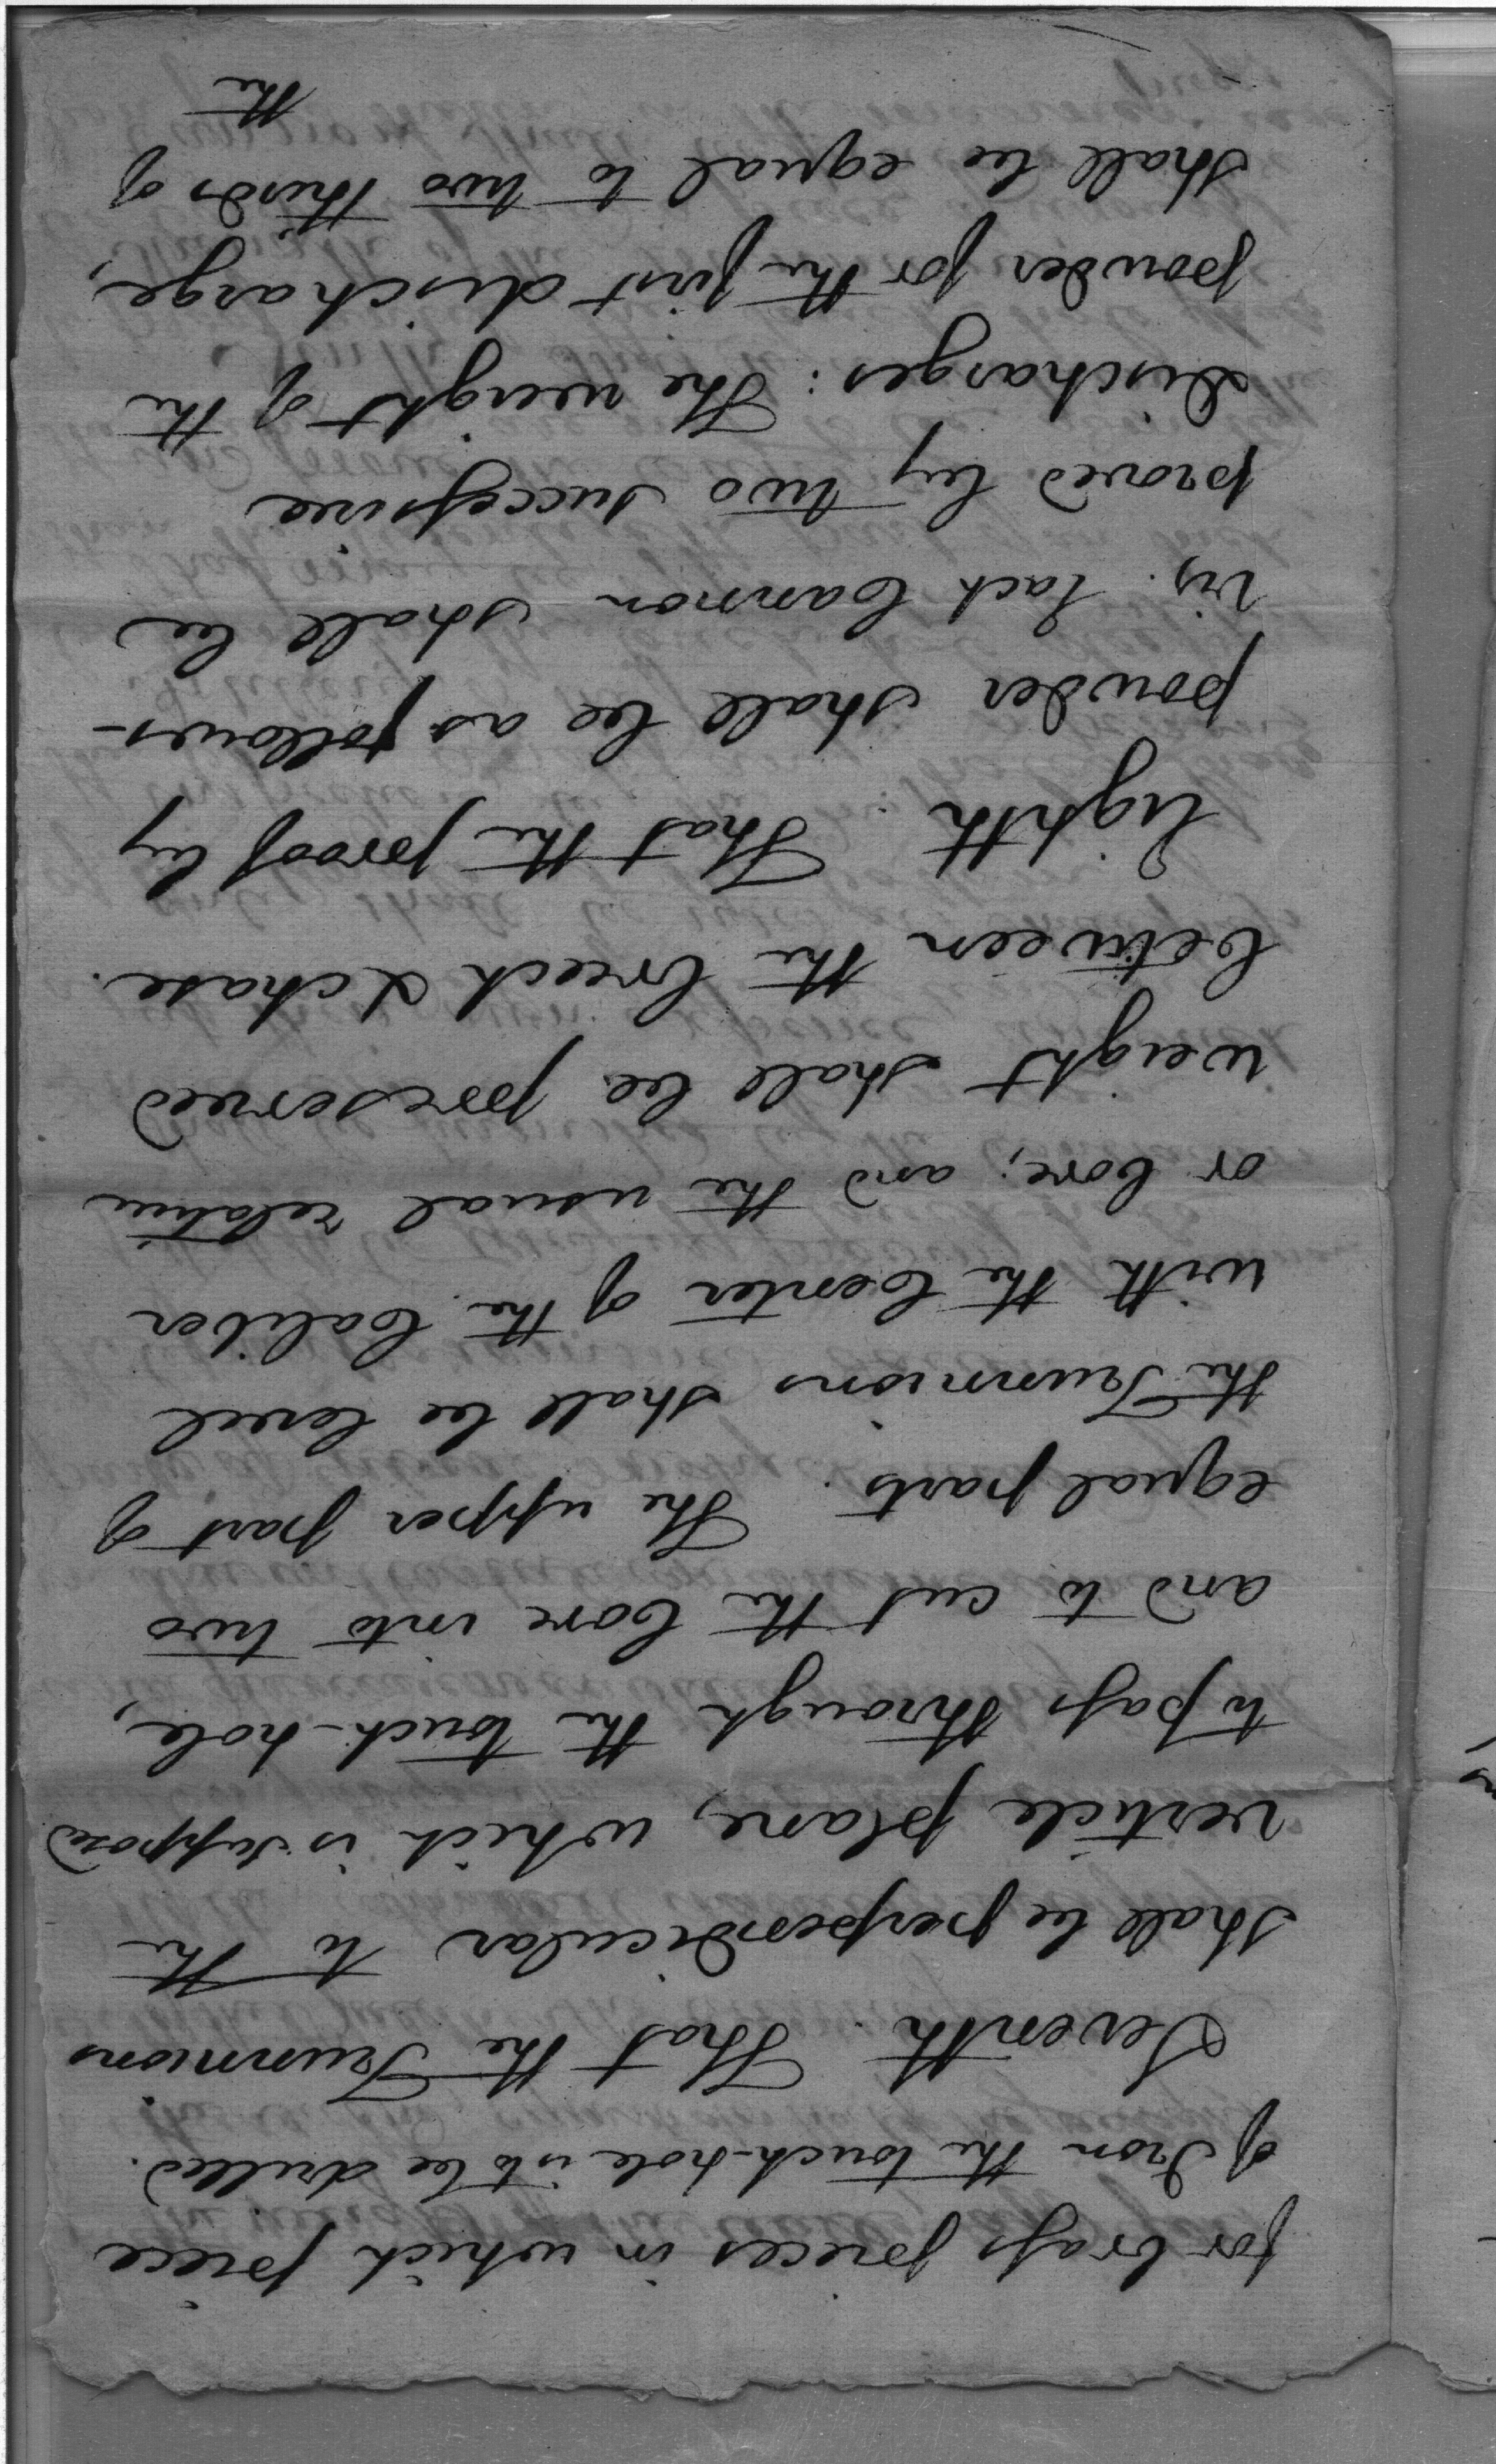 for brass pieces in which piece
of Iron the touch-hole is to be drilled.
Seventh. That the Trunnions
shall be perpendicular to the
verticle plane, which is supposed
to pass through the touch-hole,
and to cut the bore into two
equal parts. The upper part of
the Trunnions shall be level
with the Center of the Caliber
or bore; and the usual relative
weight shall be preserved
between the breech & chase.
Eighth. That the proof by
powder shall be as follows-
viz. Each Cannon shall be
proved by two successive
discharges: The weight of the
powder for the first discharge,
shall be equal to two thirds of
the